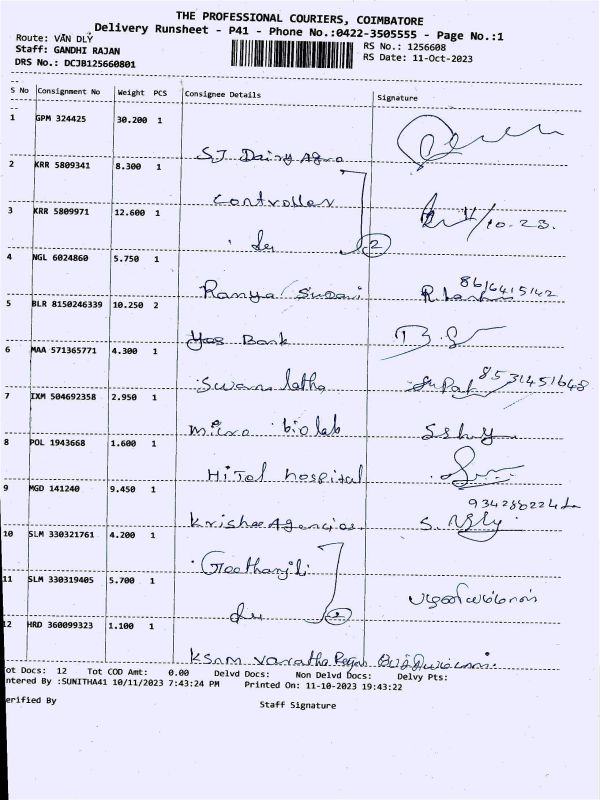 THE PROFESSIONAL COURIERS, COIMBATORE
Delivery Runsheet - P41 - Phone No.:0422-3505555 - Page No.:1
Route: VAN DLY
Staff: GANDHI RAJAN
DRS No.: DCJB125660801
RS No.: 1256608
RS Date: 11-Oct-2023
S No Consignment No Weight PCS Consignee Details Signature
1 GPM 324425 30.200 1
SJ Dairy Agro
2 KRR 5809341 8.300 1
Controller
3 KRR 5809971 12.600 1
11/10.23.
do 2
4 NGL 6024860 5.750 1
Ramya Sudari 8616415142
5 BLR 8150246339 10.250 2
Yes Bank
6 MAA 571365771 4.300 1
Swarna latha 8531451648
7 IXM 504692358 2.950 1
micro bio lab
8 POL 1943668 1.600 1
HiTel hospital
9 MGD 141240 9.450 1
Krishee Agencies
10 SLM 330321761 4.200 1
Geethanjili
11 SLM 330319405 5.700 1
do 2 பழனியம்மாள்
12 HRD 360099323 1.100 1
KSNM Varatha
Tot Docs: 12 Tot COD Amt: 0.00 Delvd Docs: Non Delvd Docs: Delvy Pts:
ntered By :SUNITHA41 10/11/2023 7:43:24 PM Printed On: 11-10-2023 19:43:22
erified By Staff Signature